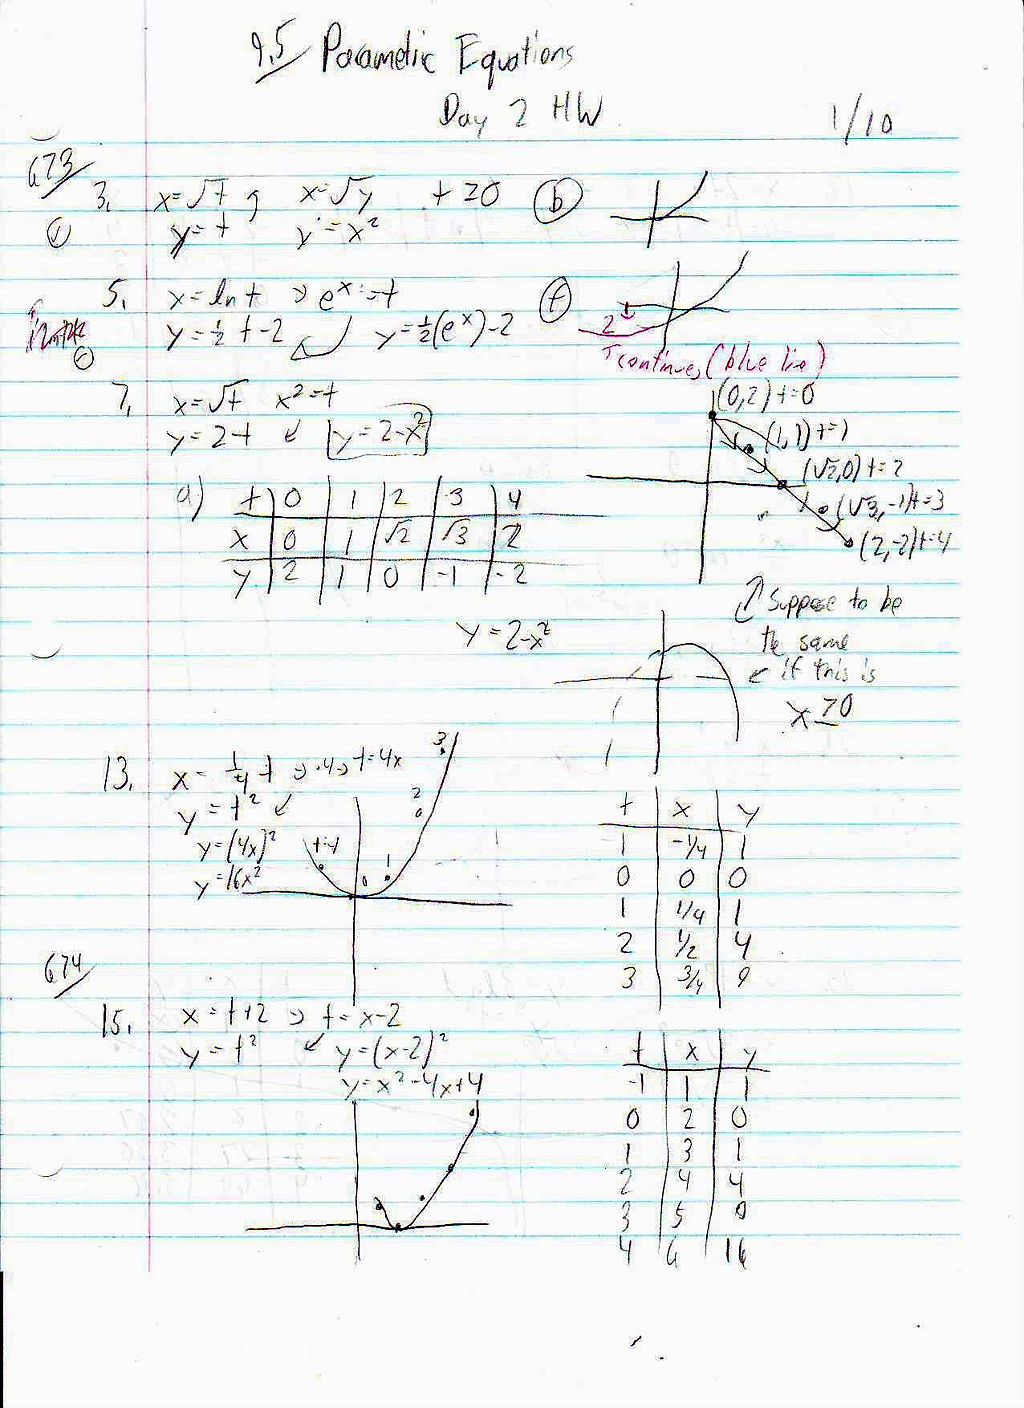 9.5 Parametric Equations
Day 2 HW
1/10
673
3. x=√t, x=√y t≥0 (b)
y=t y=x²
5. x=ln t → e^x=t (f)
y=½t-2 y=½(e^x)-2
2
continues (blue line)
7. x=√t x²=t
y=2-t y=2-x²
(0,2) t=0
(1,1) t=1
(√2,0) t=2
(√3,-1) t=3
(2,-2) t=4
a) t 0 1 2 3 4
x 0 1 √2 √3 2
y 2 1 0 -1 -2
y=2-x²
Suppose to be
the same
if this is
x≥0
13. x=¼t → ·4 → t=4x
y=t²
y=(4x)²
y=16x²
3
2
1
0
t x y
1 -1/4 1
0 0 0
1 1/4 1
2 1/2 4
3 3/4 9
674
15. x=t+2 → t=x-2
y=t² y=(x-2)²
y=x²-4x+4
t x y
-1 1 1
0 2 0
1 3 1
2 4 4
3 5 9
4 6 16